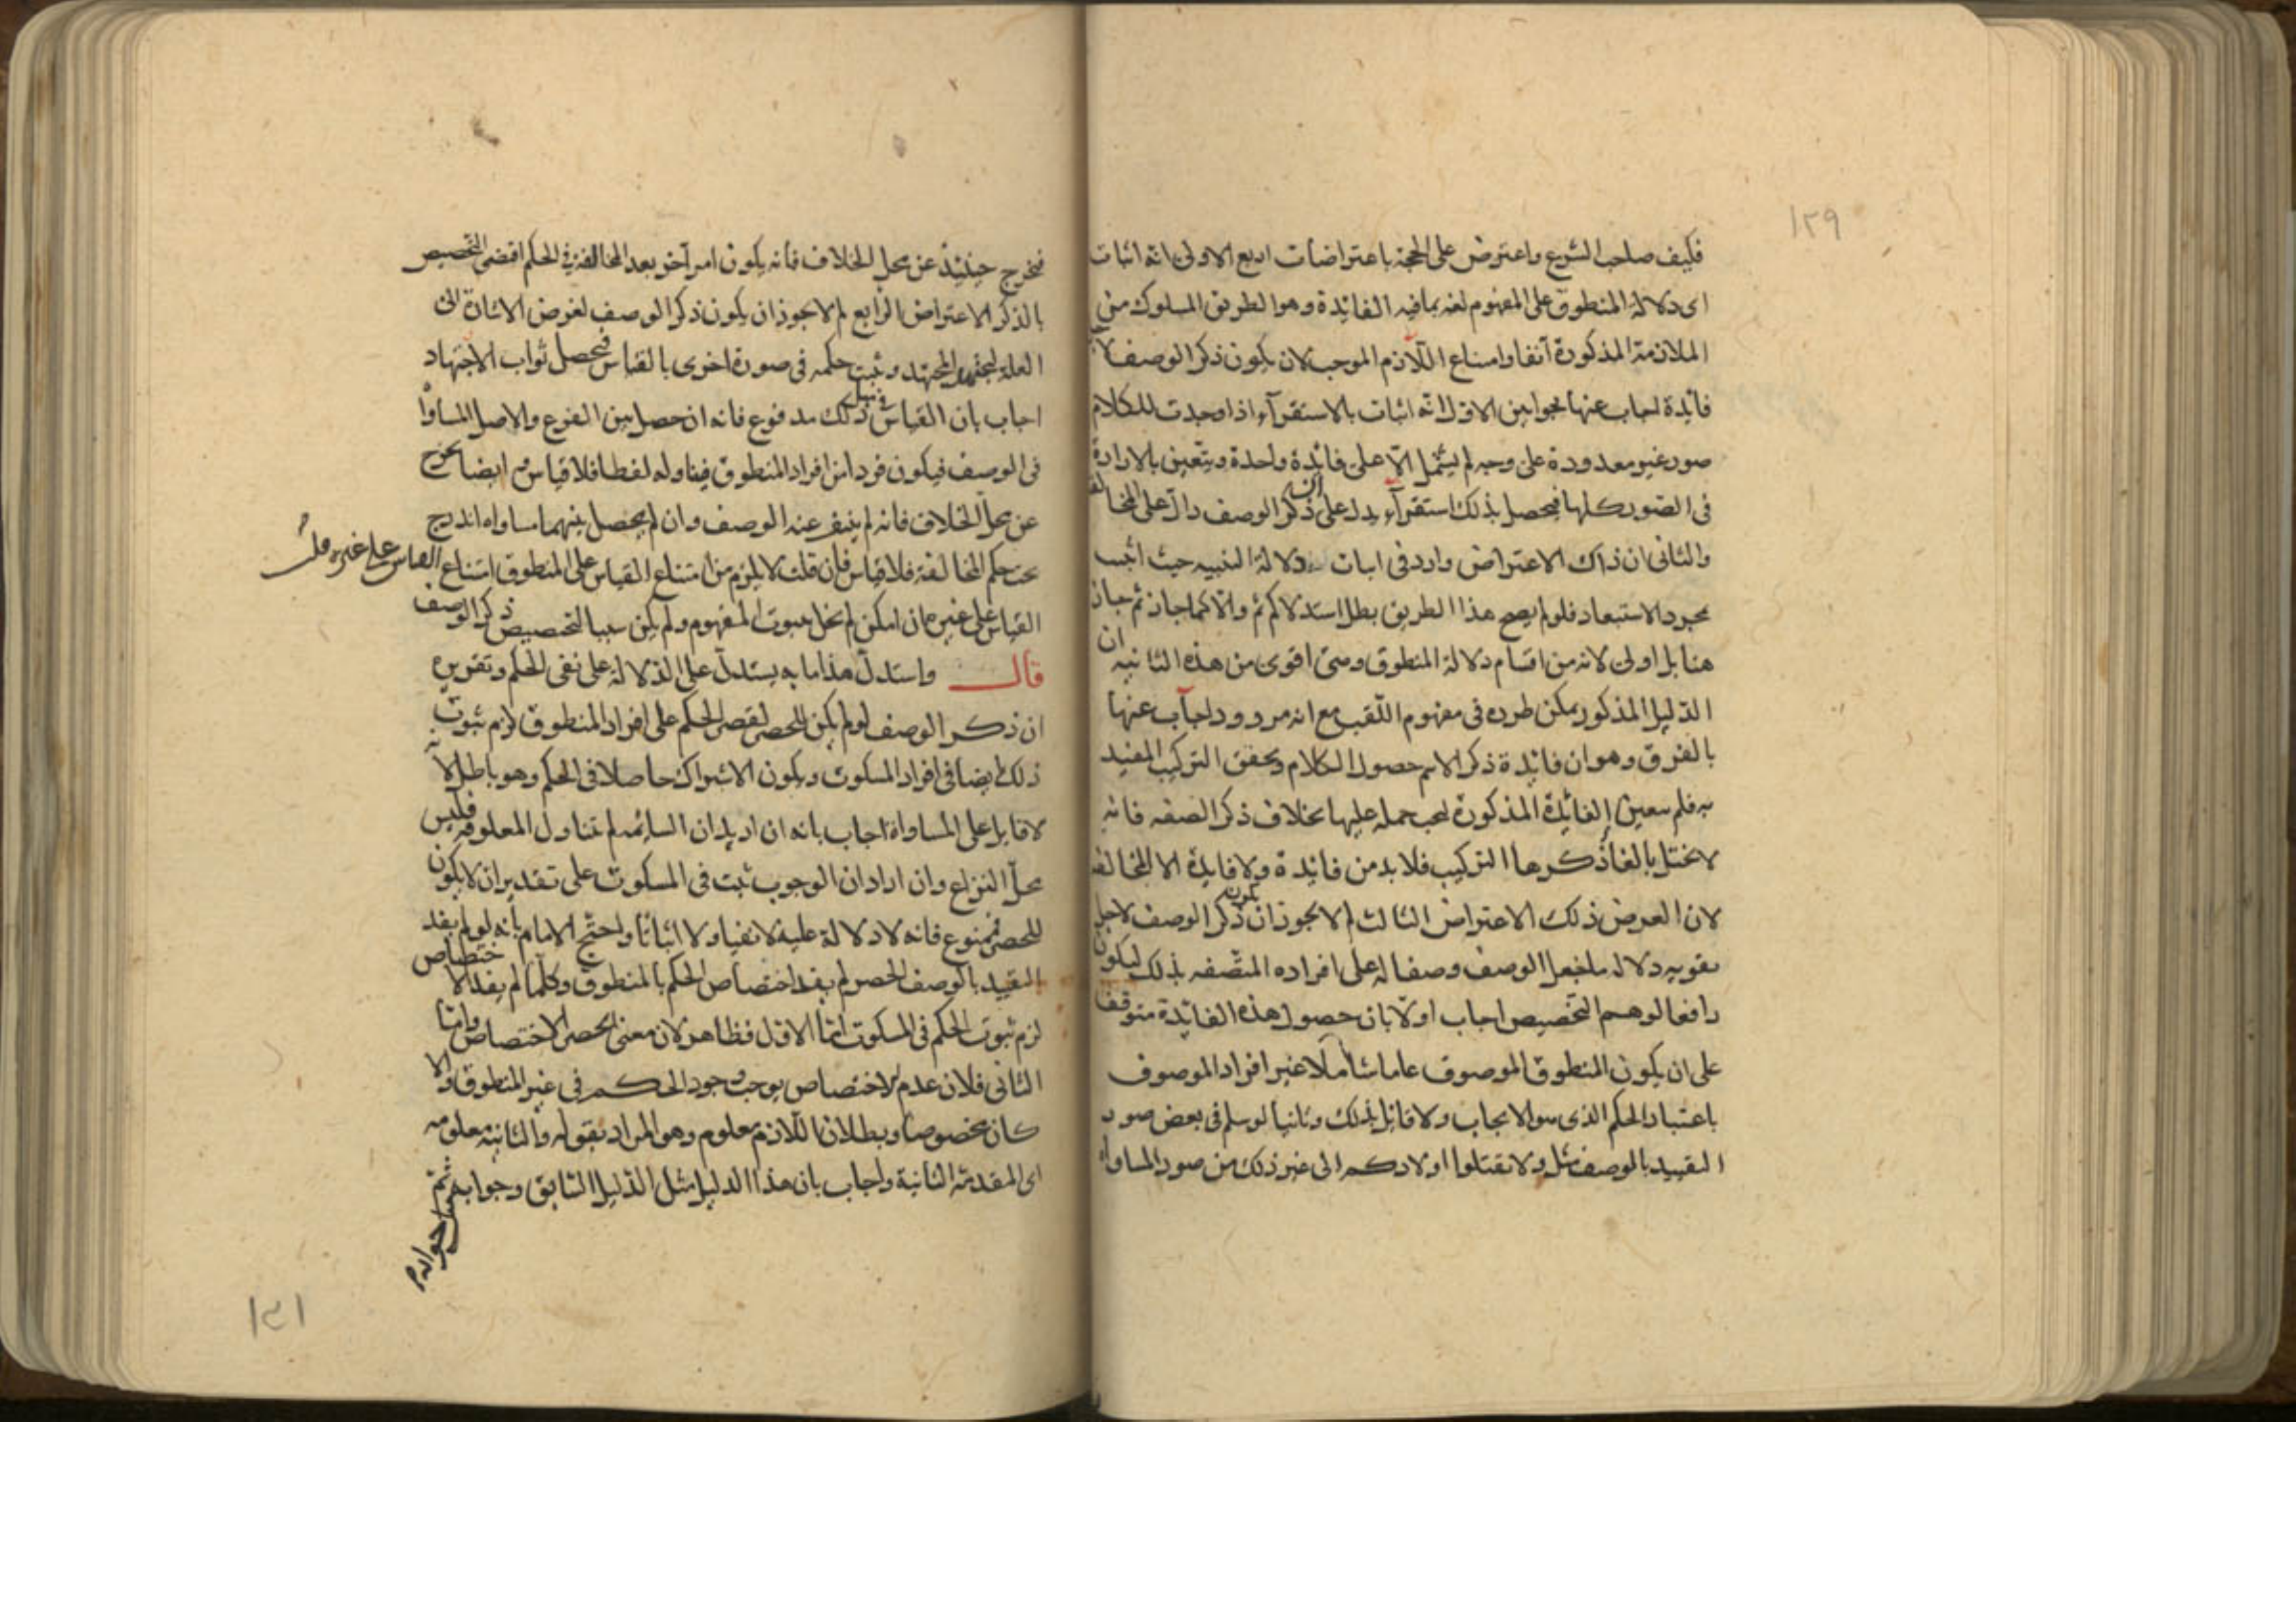 ١٢٩
فكيف صلحب الشرع واعترض على الحجة باعتراضات اربع الاولى انه اثبات
اى دلالة المنطوق على المفهوم لغة بما فيه الفائدة وهو الطريق المسلوك من
الملازمة المذكورة آنفا وامتناع اللازم الموجب لان يكون ذكر الوصف لا
فائدة اجاب عنها بجوابين الاول انه اثبات بالاستقرآء اذا وجدت للكلام
صور غير معدودة على وجه لم يشمل الا على فائدة واحدة ويتعين بالارادة
فى الصور كلها فيحصل بذلك استقرآء يدل على ان ذكر الوصف دال على المخالفة
والثانى ان ذاك الاعتراض وارد فى اثبات دلالة التنبيه حيث اثبت
بمجرد الاستبعاد فلو لم يصح هذا الطريق بطل استدلالكم ثم والا كما جاز ثم جاز
هنا بل اولى لانه من اقسام دلالة المنطوق وهى اقوى من هذه الثانية ان
الدليل المذكور يمكن طرده فى مفهوم اللقب مع انه مردود اجاب عنها
بالفرق وهو ان فائدة ذكر الاسم حصول الكلام وتحقق التركيب المفيد
به فلم يتعين الفائدة المذكورة ليجب حمله عليها بخلاف ذكر الصفه فانه
لا يختل بالغا ذكرها التركيب فلا بد من فائدة ولا فايدة الا المخالفة
لان الغرض ذلك الاعتراض الثالث لم لا يجوز ان يكون ذكر الوصف لاجل
تقويه دلاله ما جعل الوصف وصفا له على افراده المتصفه بذلك ليكون
رافعا لوهم التخصيص اجاب اولا بان حصول هذه الفائدة متوقف
على ان يكون المنطوق الموصوف عاما شاملا غير افراد الموصوف
باعتبار الحكم الذى هو الايجاب ولا قائل بذلك وثانيا لو سلم فى بعض صور
التقييد بالوصف مثل ولا تقتلوا اولادكم الى غير ذلك من صور المساواة
فيخرج حينئذ عن محل الخلاف فانه يكون امرا آخر بعد المخالفة فى الحكم اقتضى التخصيص
بالذكر الاعتراض الرابع لم لا يجوز ان يكون ذكر الوصف لغرض الاشارة الى
العلة ليجتهد المجتهد ويثبت حكمه فى صورة اخرى بالقياس فيحصل ثواب الاجتهاد
اجاب بان القياس فى مثل ذلك مدفوع فانه ان حصل بين الفرع والاصل المساواة
فى الوصف فيكون فردا من افراد المنطوق فيتناوله لفظا فلا قياس ثم ايضا يخرج
عن محل الخلاف فانه لم ينفر عنه الوصف وان لم يحصل بينهما مساواه اندرج
تحت حكم المخالفة فلا قياس فان قلت لا يلزم من امتناع القياس على المنطوق امتناع القياس على غيره قلت
القياس على غيره ان امكن لم يخل بثبوت المفهوم ولم يكن سببا لتخصيص ذكر الوصف
قال واستدل هذا ما به يستدل على الدلالة على نفى الحكم وتقويره
ان ذكر الوصف لو لم يكن للحصر لقصر الحكم على افراد المنطوق لزم ثبوت
ذلك ايضا فى افراد المسكوت ويكون الاشتراك حاصلا فى الحكم وهو باطل لانه
لا قايل على المساواة اجاب بانه ان اريد ان السائمه لم تتناول المعلوفة فليس
محل النزاع وان اراد ان الوجوب ثبت فى المسكوت على تقدير ان لا يكون
للحصر فممنوع فانه لا دلالة عليه لا نفيا ولا اثباتا واحتج الامام بانه لو لم يفد
التقييد بالوصف الحصر لم يفد اختصاص الحكم بالمنطوق وكلما لم يفد الاختصاص
لزم ثبوت الحكم فى المسكوت اما الاول فظاهر لان معنى الحصر الاختصاص واما
الثانى فلان عدم الاختصاص يوجب وجود الحكم فى غير المنطوق والا
كان مخصوصا وبطلان اللازم معلوم وهو المراد بقوله والثانية معلومه
اى المقدمة الثانية واجاب بان هذا الدليل مثل الدليل السابق وجوابه ثم
١٣١